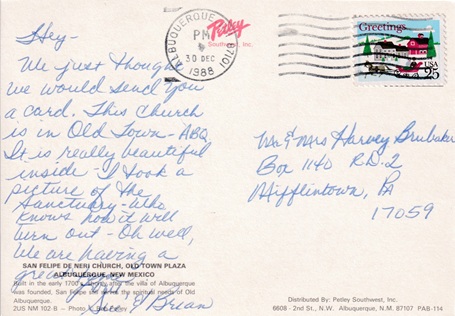 Hey-
We just thought
we would send you
a card. This church
is in Old Town-ABQ
It is really beautiful
inside- I took a
picture of the
Sanctuary-who
knows how it will
turn out- Oh well,
We are having a
great
Sue & Brian
SAN FELIPE DE NERI CHURCH, OLD TOWN PLAZA
ALBUQUERQUE, NEW MEXICO
Built in the early 1700's, shortly after the villa of Albuquerque
was founded, San Felipe still serves the spiritual needs of Old
Albuquerque.
2US NM 102-B - Photo
ALBUQUERQUE 87101
PM
30 DEC
1988
Petley
Southwest, Inc.
Greetings
USA
25
Mr & Mrs Harvey Brubaker
Box 1140 R.D. 2
Mifflintown, PA
17059
Distributed By: Petley Southwest, Inc.
6608 - 2nd St., N.W. Albuquerque, N.M. 87107 PAB-114